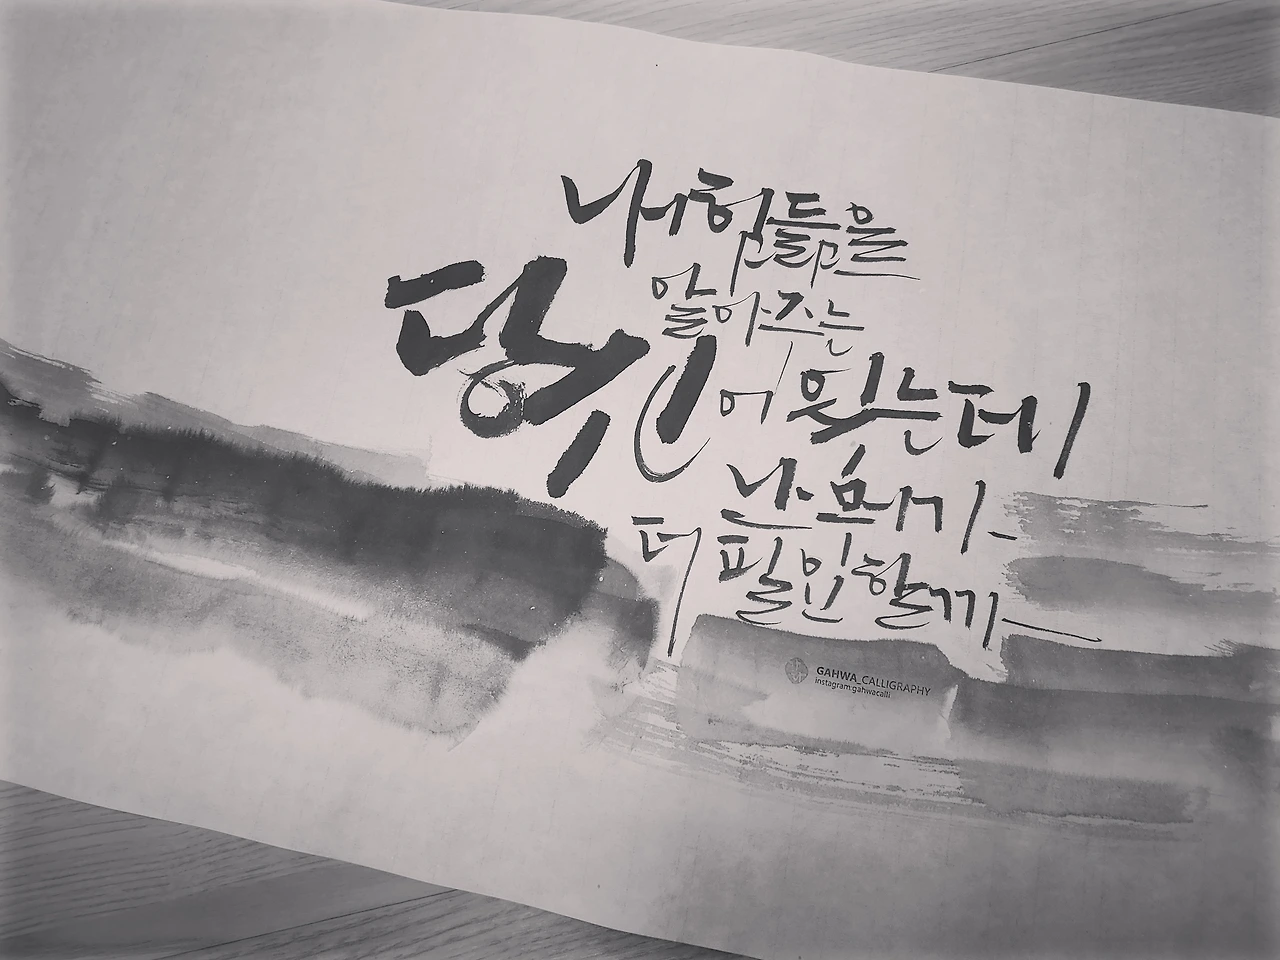 내 힘듦을
알아주는
당신이 있는데
난 뭐가
더 필요할까
GAHWA_CALLIGRAPHY
instagram:gahwacalli